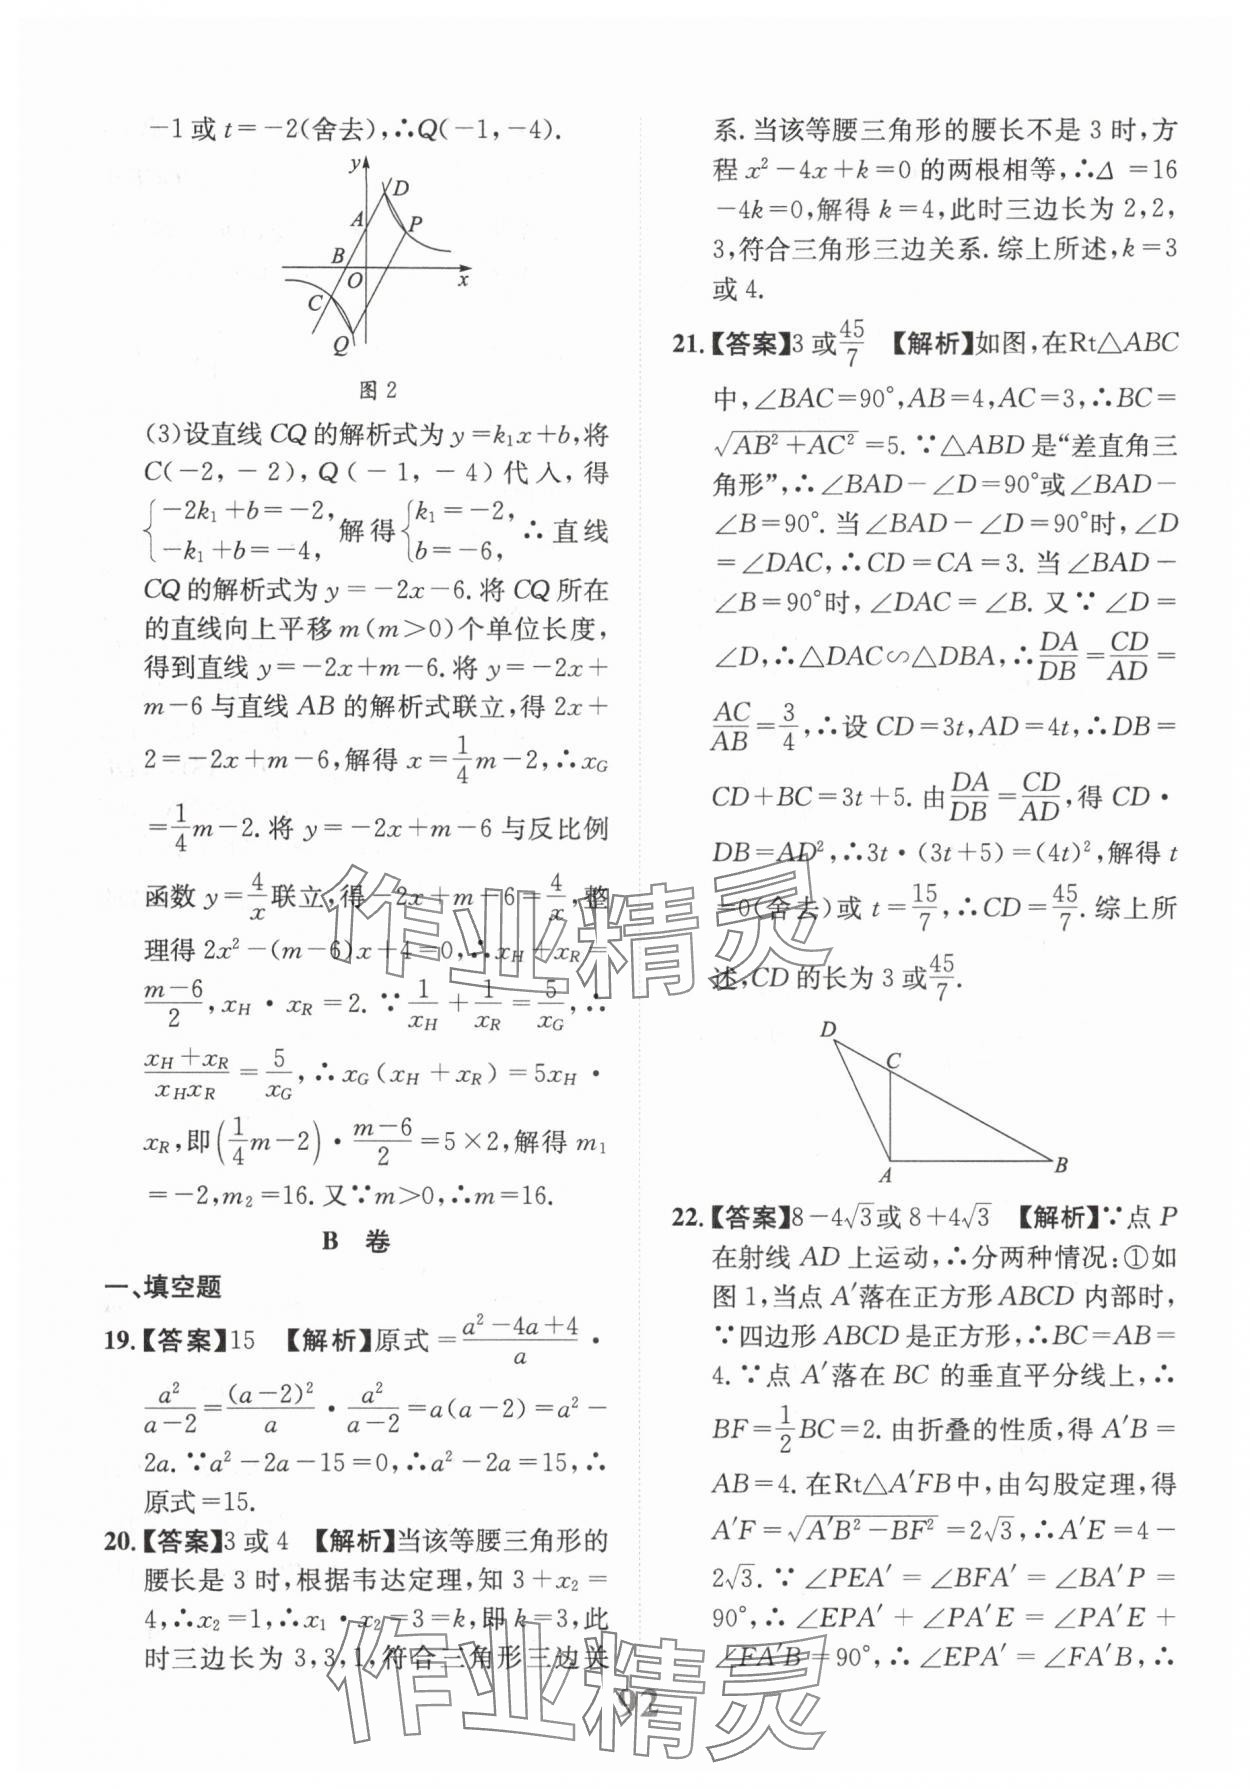 -1或t=-2(舍去),∴Q(-1,-4).
y
D
A
P
B
O
x
C
Q
图2
(3)设直线CQ的解析式为y=k₁x+b,将
C(-2,-2),Q(-1,-4)代入,得
{-2k₁+b=-2, -k₁+b=-4, 解得{k₁=-2, b=-6, ∴直线
CQ的解析式为y=-2x-6.将CQ所在
的直线向上平移m(m>0)个单位长度,
得到直线y=-2x+m-6.将y=-2x+
m-6与直线AB的解析式联立,得2x+
2=-2x+m-6,解得x=1/4m-2,∴x_G
=1/4m-2.将y=-2x+m-6与反比例
函数y=4/x联立,得-2x+m-6=4/x,整
理得2x²-(m-6)x+4=0,∴x_H+x_R=
(m-6)/2,x_H·x_R=2.∵1/x_H+1/x_R=5/x_G,∴
(x_H+x_R)/(x_Hx_R)=5/x_G,∴x_G(x_H+x_R)=5x_H·
x_R,即(1/4m-2)·(m-6)/2=5×2,解得m₁
=-2,m₂=16.又∵m>0,∴m=16.
B 卷
一、填空题
19.【答案】15 【解析】原式=(a²-4a+4)/a·
a²/(a-2)=(a-2)²/a·a²/(a-2)=a(a-2)=a²-
2a.∵a²-2a-15=0,∴a²-2a=15,∴
原式=15.
20.【答案】3或4 【解析】当该等腰三角形的
腰长是3时,根据韦达定理,知3+x₂=
4,∴x₂=1,∴x₁·x₂=3=k,即k=3,此
时三边长为3,3,1,符合三角形三边关
系.当该等腰三角形的腰长不是3时,方
程x²-4x+k=0的两根相等,∴Δ=16
-4k=0,解得k=4,此时三边长为2,2,
3,符合三角形三边关系.综上所述,k=3
或4.
21.【答案】3或45/7 【解析】如图,在Rt△ABC
中,∠BAC=90°,AB=4,AC=3,∴BC=
√(AB²+AC²)=5.∵△ABD是“差直角三
角形”,∴∠BAD-∠D=90°或∠BAD-
∠B=90°.当∠BAD-∠D=90°时,∠D
=∠DAC,∴CD=CA=3.当∠BAD-
∠B=90°时,∠DAC=∠B.又∵∠D=
∠D,∴△DAC∽△DBA,∴DA/DB=CD/AD=
AC/AB=3/4,∴设CD=3t,AD=4t,∴DB=
CD+BC=3t+5.由DA/DB=CD/AD,得CD·
DB=AD²,∴3t·(3t+5)=(4t)²,解得t
=0(舍去)或t=15/7,∴CD=45/7.综上所
述,CD的长为3或45/7.
D
C
A
B
22.【答案】8-4√3或8+4√3 【解析】∵点P
在射线AD上运动,∴分两种情况:①如
图1,当点A′落在正方形ABCD内部时,
∵四边形ABCD是正方形,∴BC=AB=
4.∵点A′落在BC的垂直平分线上,∴
BF=1/2BC=2.由折叠的性质,得A′B=
AB=4.在Rt△A′FB中,由勾股定理,得
A′F=√(A′B²-BF²)=2√3,∴A′E=4-
2√3.∵∠PEA′=∠BFA′=∠BA′P=
90°,∴∠EPA′+∠PA′E=∠PA′E+
∠FA′B=90°,∴∠EPA′=∠FA′B,∴
92
作业精灵
作业精灵